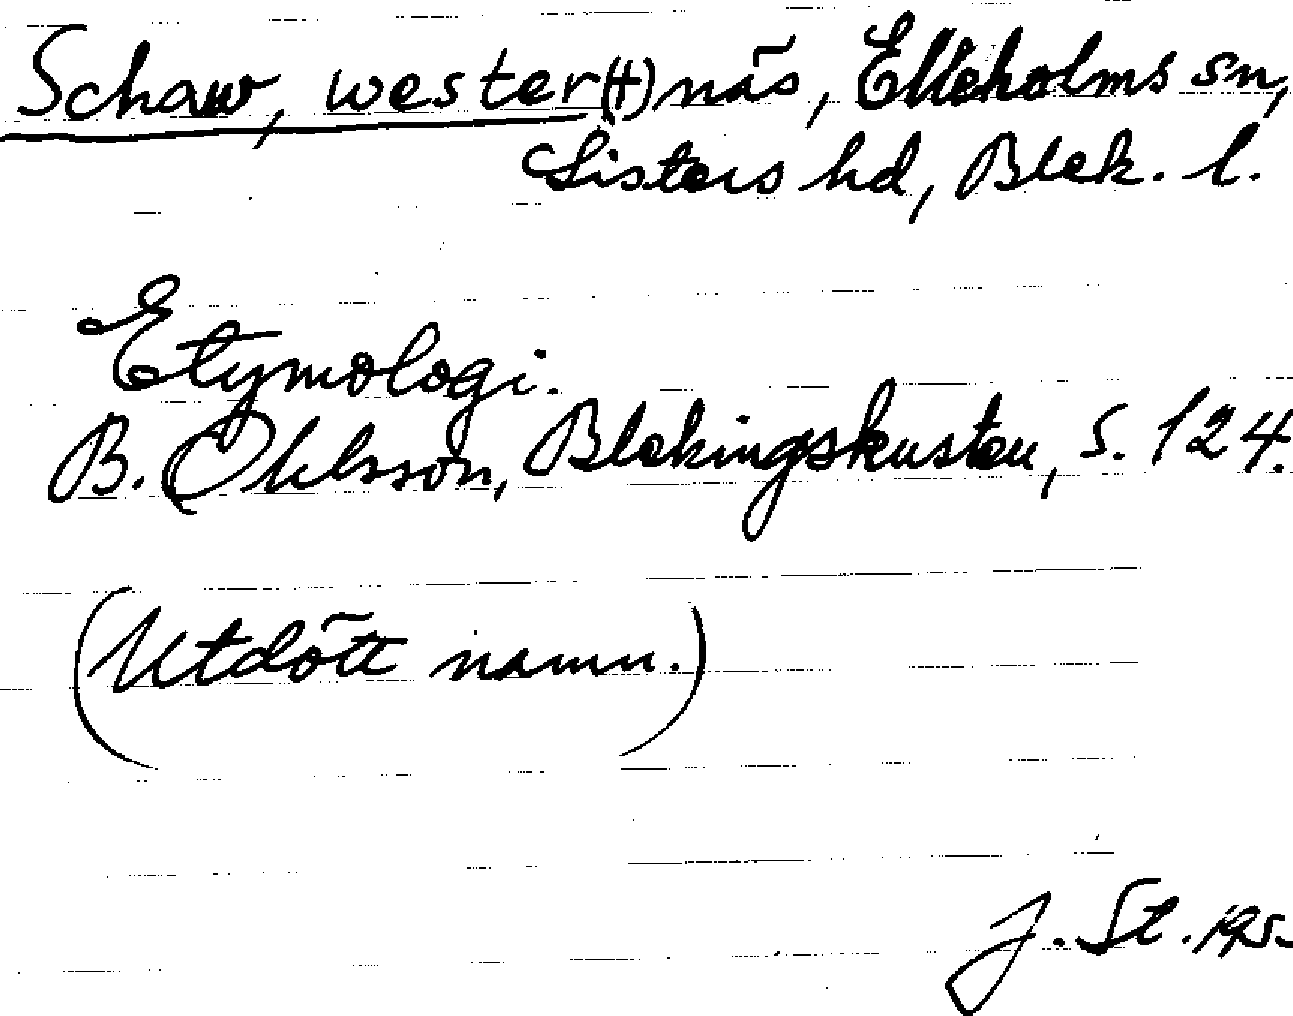 Schaw, wester(t) näs, Elleholms sn,
Listers hd, Blek. l.
Etymologi.
B. Ohlsson, Blekingskusten, S. 124.
(Utdött namn.)
J. St. 195